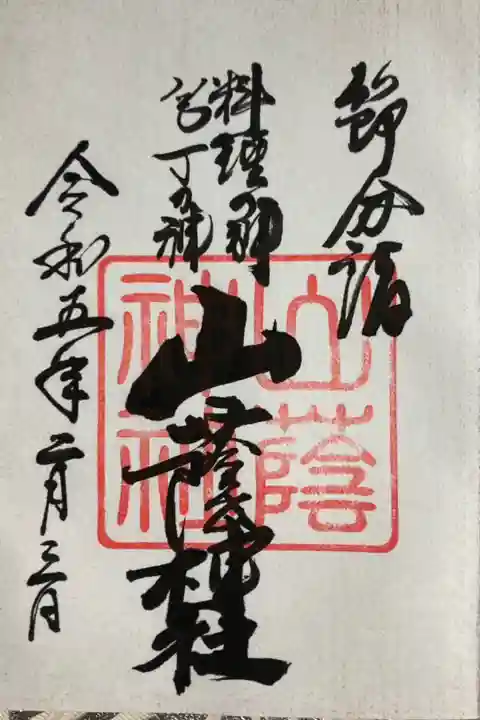 節分詣
料理の神
包丁の神
山蔭神社
令和五年二月三日
山蔭
神社